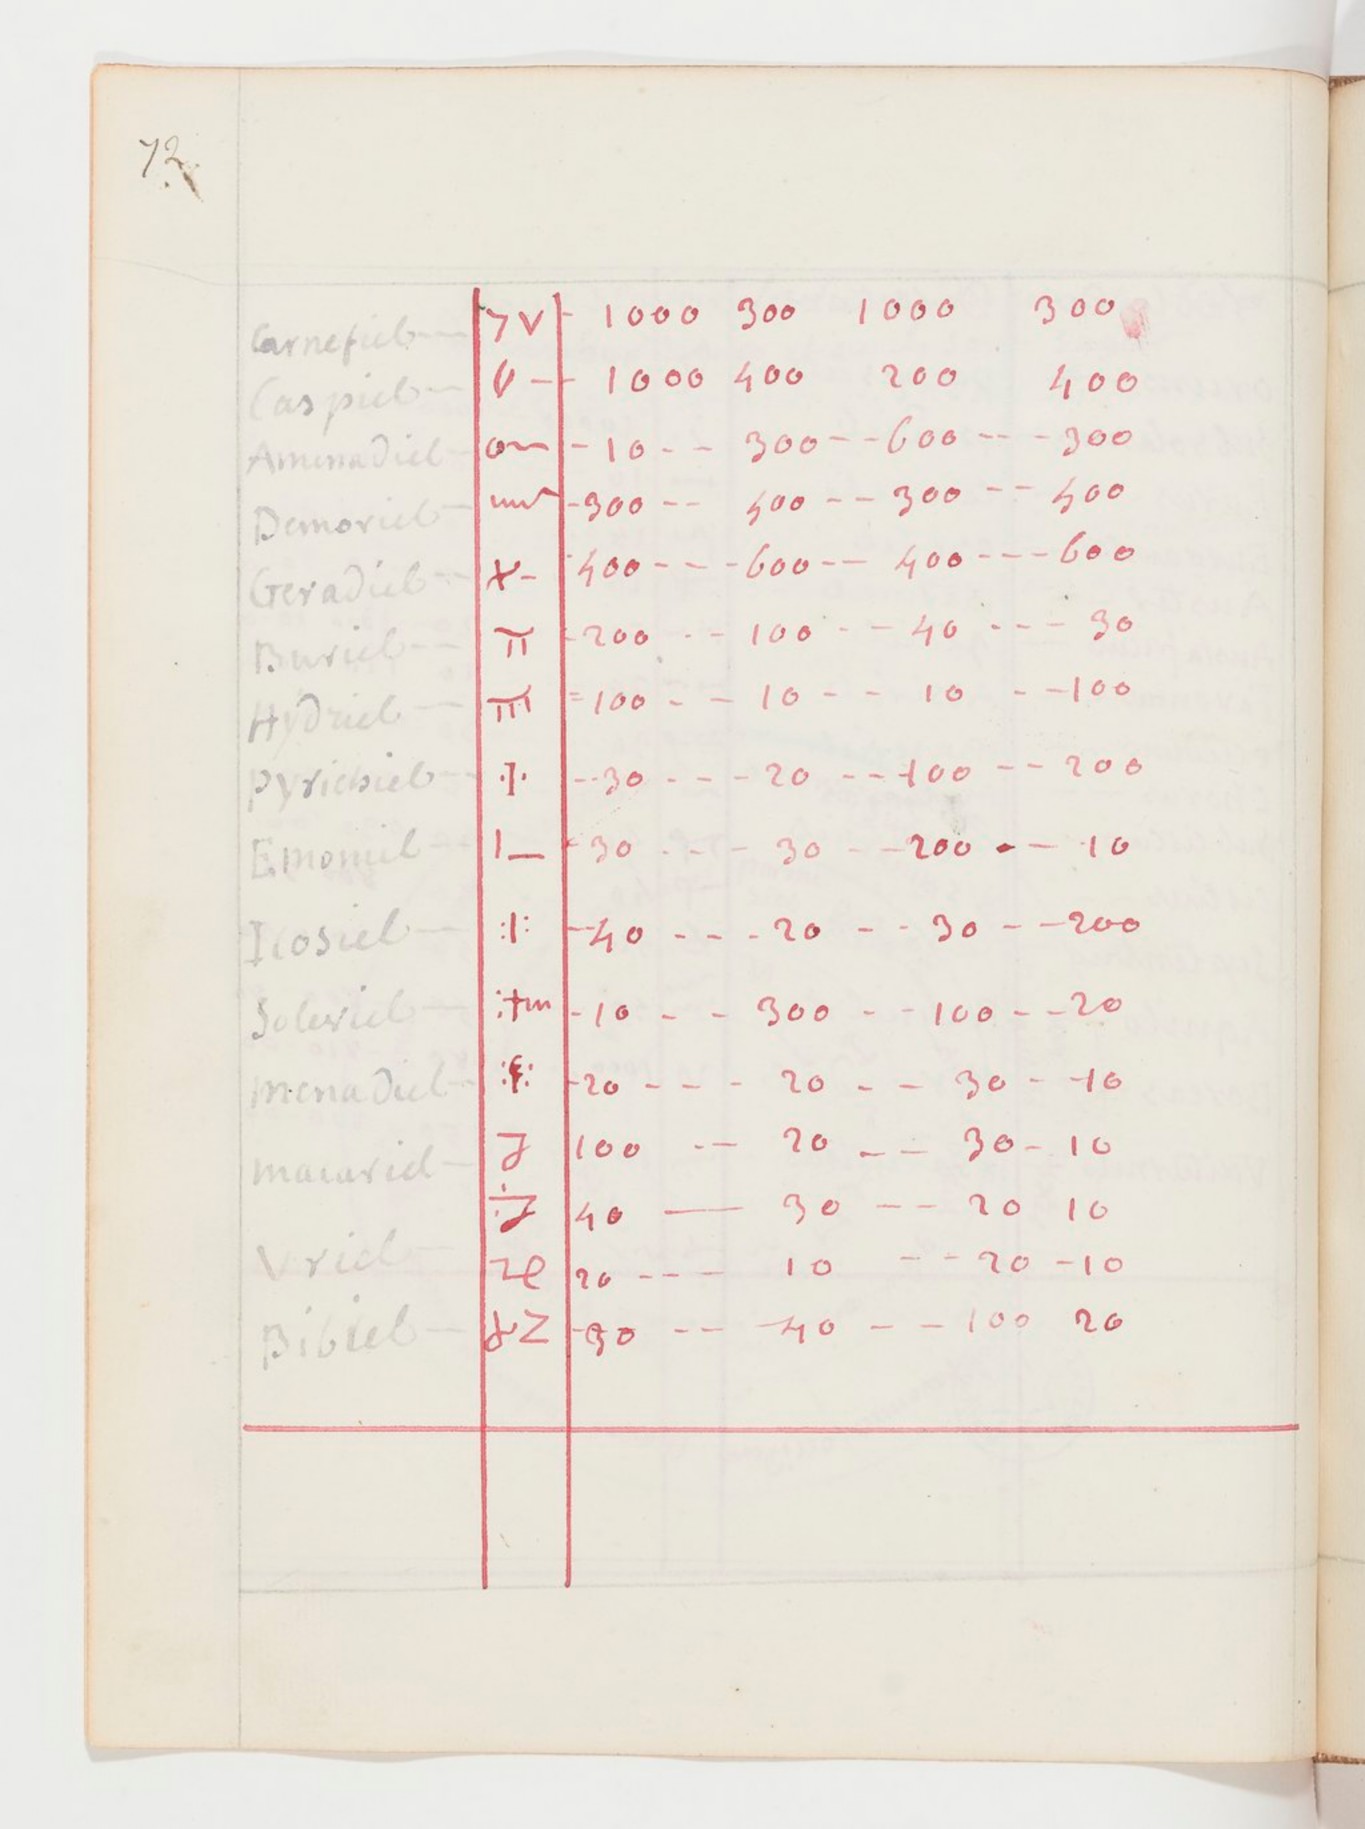 72
Carnefiel 1000 300 1000 300
Caspiel 1000 400 200 400
Amenadiel -10-- 300--600---300
Demoriel -300-- 400--300--400
Geradiel 400---600--400---600
Buriel 200--100--40---30
Hydriel =100--10--10--100
Pyrichiel --30---20--100--200
Emoniel 30---30--200--10
Icosiel -40---20--30--200
Soleriel -10--300--100--20
menadiel -20---20--30--10
macariel 100--20--30-10
40—30--20 10
Vriel 20---10--20-10
Bibiel -30--40--100 20